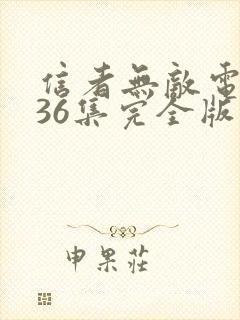 信者無敵電
36集完全版
申果莊